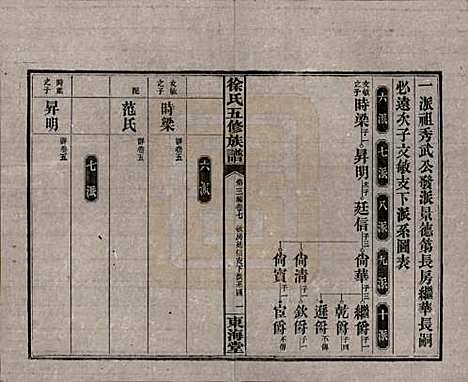 一派祖秀武公發派景德第長房繼華長嗣
必遠次子文敏支下派系圖表
六派 七派 八派 九派 十派
時梁 子一 昇明 廷信 子三 尙華 子三 繼爵 子一
乾爵 子四
遜爵 不傳
尙清 子一 欽爵 子一
尙寶 子一 宦爵 不傳
徐氏五修族譜
東海堂
六派
文敏之子 時梁 詳卷五
配 范氏 詳卷五
七派
時梁之子 昇明 詳卷五